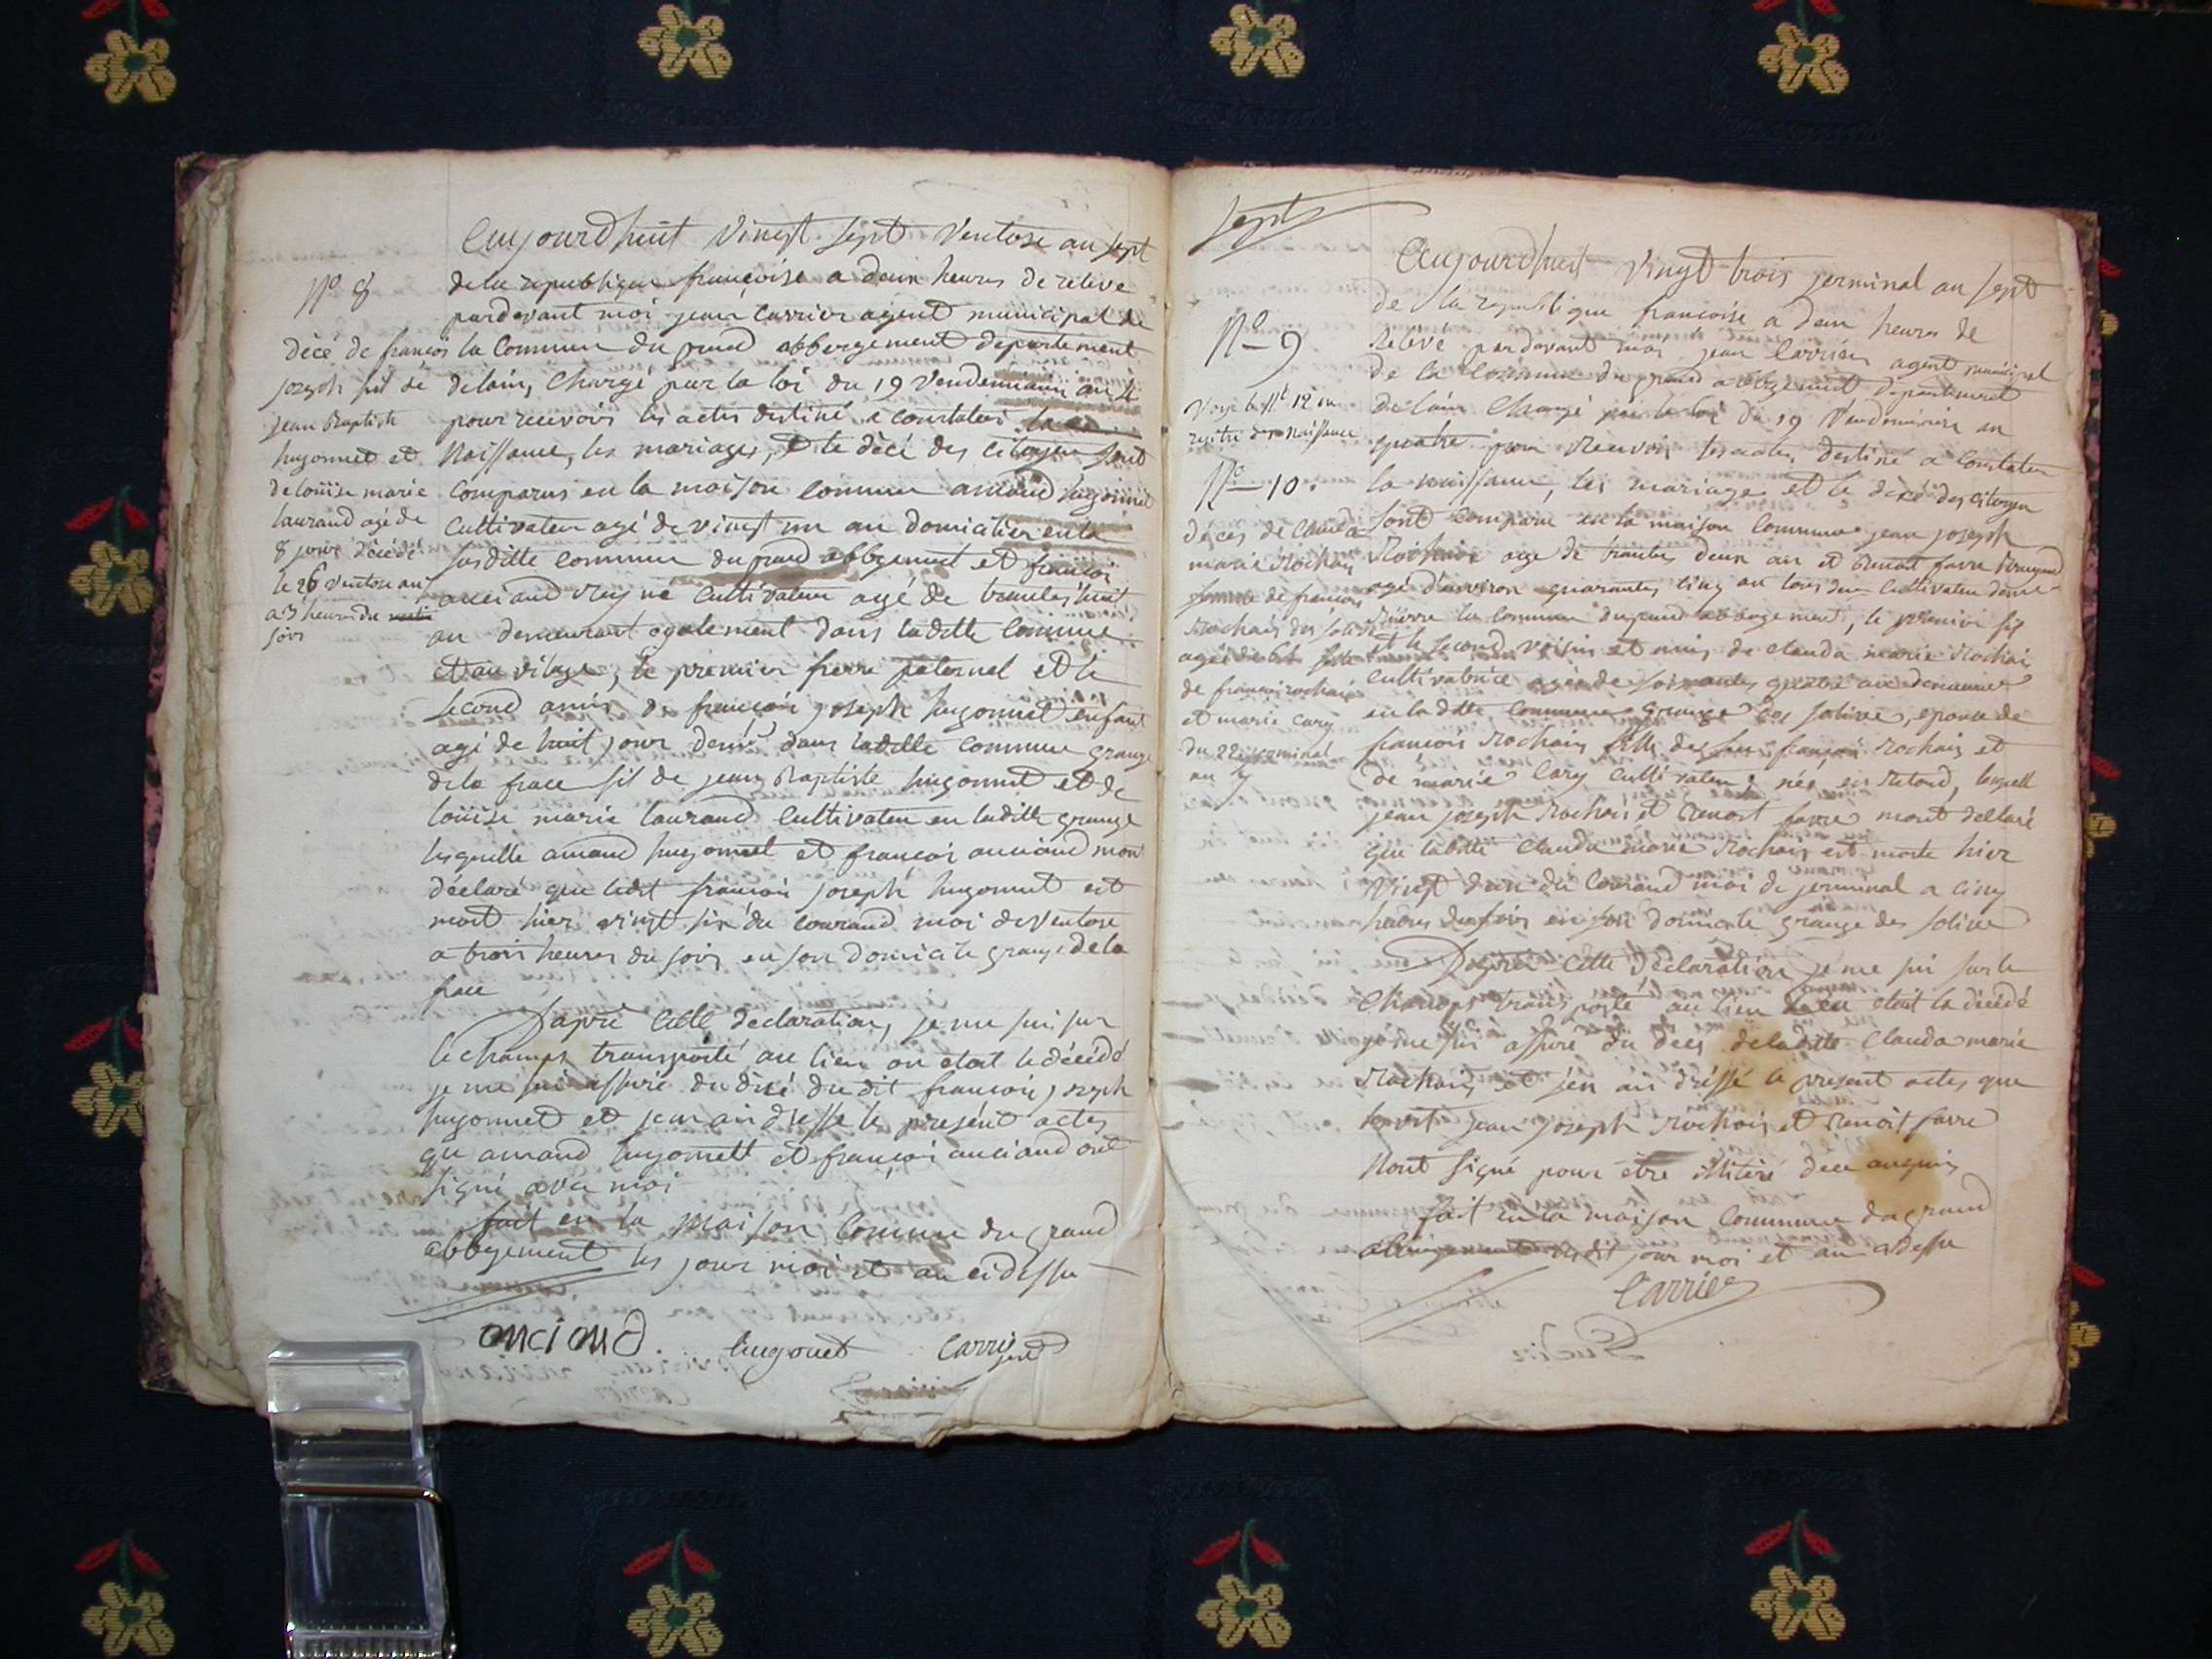 Aujourdhuit vingt sept ventose an sept
de la republique françoise a deux heures de relevé
pardevant moi jean Carrier agent municipal de
la Commune du grand abbergement departement
delain, Chargé par la loi du 19 Vendemiaire an 4
pour recevoir les actes destiné a constater la
Naissance, les mariages, et le décé des citoyen sont
comparus en la maison commune amand hugonnet
Cultivateur agé de vingt un an domicilier en la
susditte commune du grand abbgement et françoi
anciaud cultivateur agé de trentes huit
an demeurant egalement dans laditte commune
et au vilage, le premier frere paternel et le
second amis de françois joseph hugonnet enfant
agé de huit jour dans ladille commune grange
de la frace fil de jean Baptiste hugonnet et de
loüise marie laurand Cultivateur en laditte grange
lesquelle amand hugonnet et françoi anciaud mon
déclaré que ledit françoi joseph hugonnet est
mort hier vingt six du courand moi de ventose
a trois heures du soir en son domicile grange de la
frace
Daprè cette declaration, je me sui sur
le champs transporté au lieu ou etoit le décédé
je me sui assuré du décé du dit françoi joseph
hugonnet et jen ai dressé le présent actes
que amand hugonnett et françoi anciaud ont
signé avec moi
fait en la maison Comune du grand
abbgement les jour moi et an cidessu
anciaud hugonet Carrier
Nº 8
décé de françoi
joseph fil de
jean Baptiste
hugonnet et
de loüise marie
laurand agé de
8 jour décédé
le 26 ventose an 7
a 3 heures du matin
soir
sept
Aujourdhuit vingt trois germinal an sept
de la republique françoise a deux heures de
Relevé pardevant moi jean Carrier agent municipal
de la Commune du grand abbgement département
de lain Chargé par la loi du 19 Vendemiaire an
quatre pour Recevoir les actes destiné a Constater
la naissance, les mariages et le décé des Citoyen
sont comparu en la maison Commune jean joseph
Rochaix age de trentes deux an et Benoit favre
agé denviron quarantes cinq an tous deux Cultivateur
la commune du grand abbgement, le premier fil
et le second voisin et amis de clauda marie Rochaix
cultivatrice agée de soixantes quatre an demeurant
en ladtte commune grange des soliveé, epouse de
françois Rochaix fille de feu françoi Rochaix et
de marie Cary Cultivateur, née en Retord, lesquell
jean joseph Rochaix et Benoit favre mont declaré
que laditte Clauda marie Rochaix est morte hier
vingt deux du Courand moi de germinal a cinq
heures du soir en son domicile grange des solivee
Daprée Cette Déclaration je me sui sur le
champs transporté au lieu ou etoit la décédé
je me sui assuré du décé de ladite Clauda marie
Rochaix et jen ai dréssé le present actes que
jean joseph Rochaix et Benoit favre
Nont signé pour être illiteré de ce anquis
fait en la maison Commune du grand
abbergement dit jour moi et an adessu
Carrier
Nº 9
Voyé le Nº 12 au
regitre des naissance
Nº 10.
décés de Clauda
marie Rochaix
femme de françois
Rochaix des solivee
agée de 64 fille
de françoi rochaix
et marie Cary
du 22 germinal
an 7